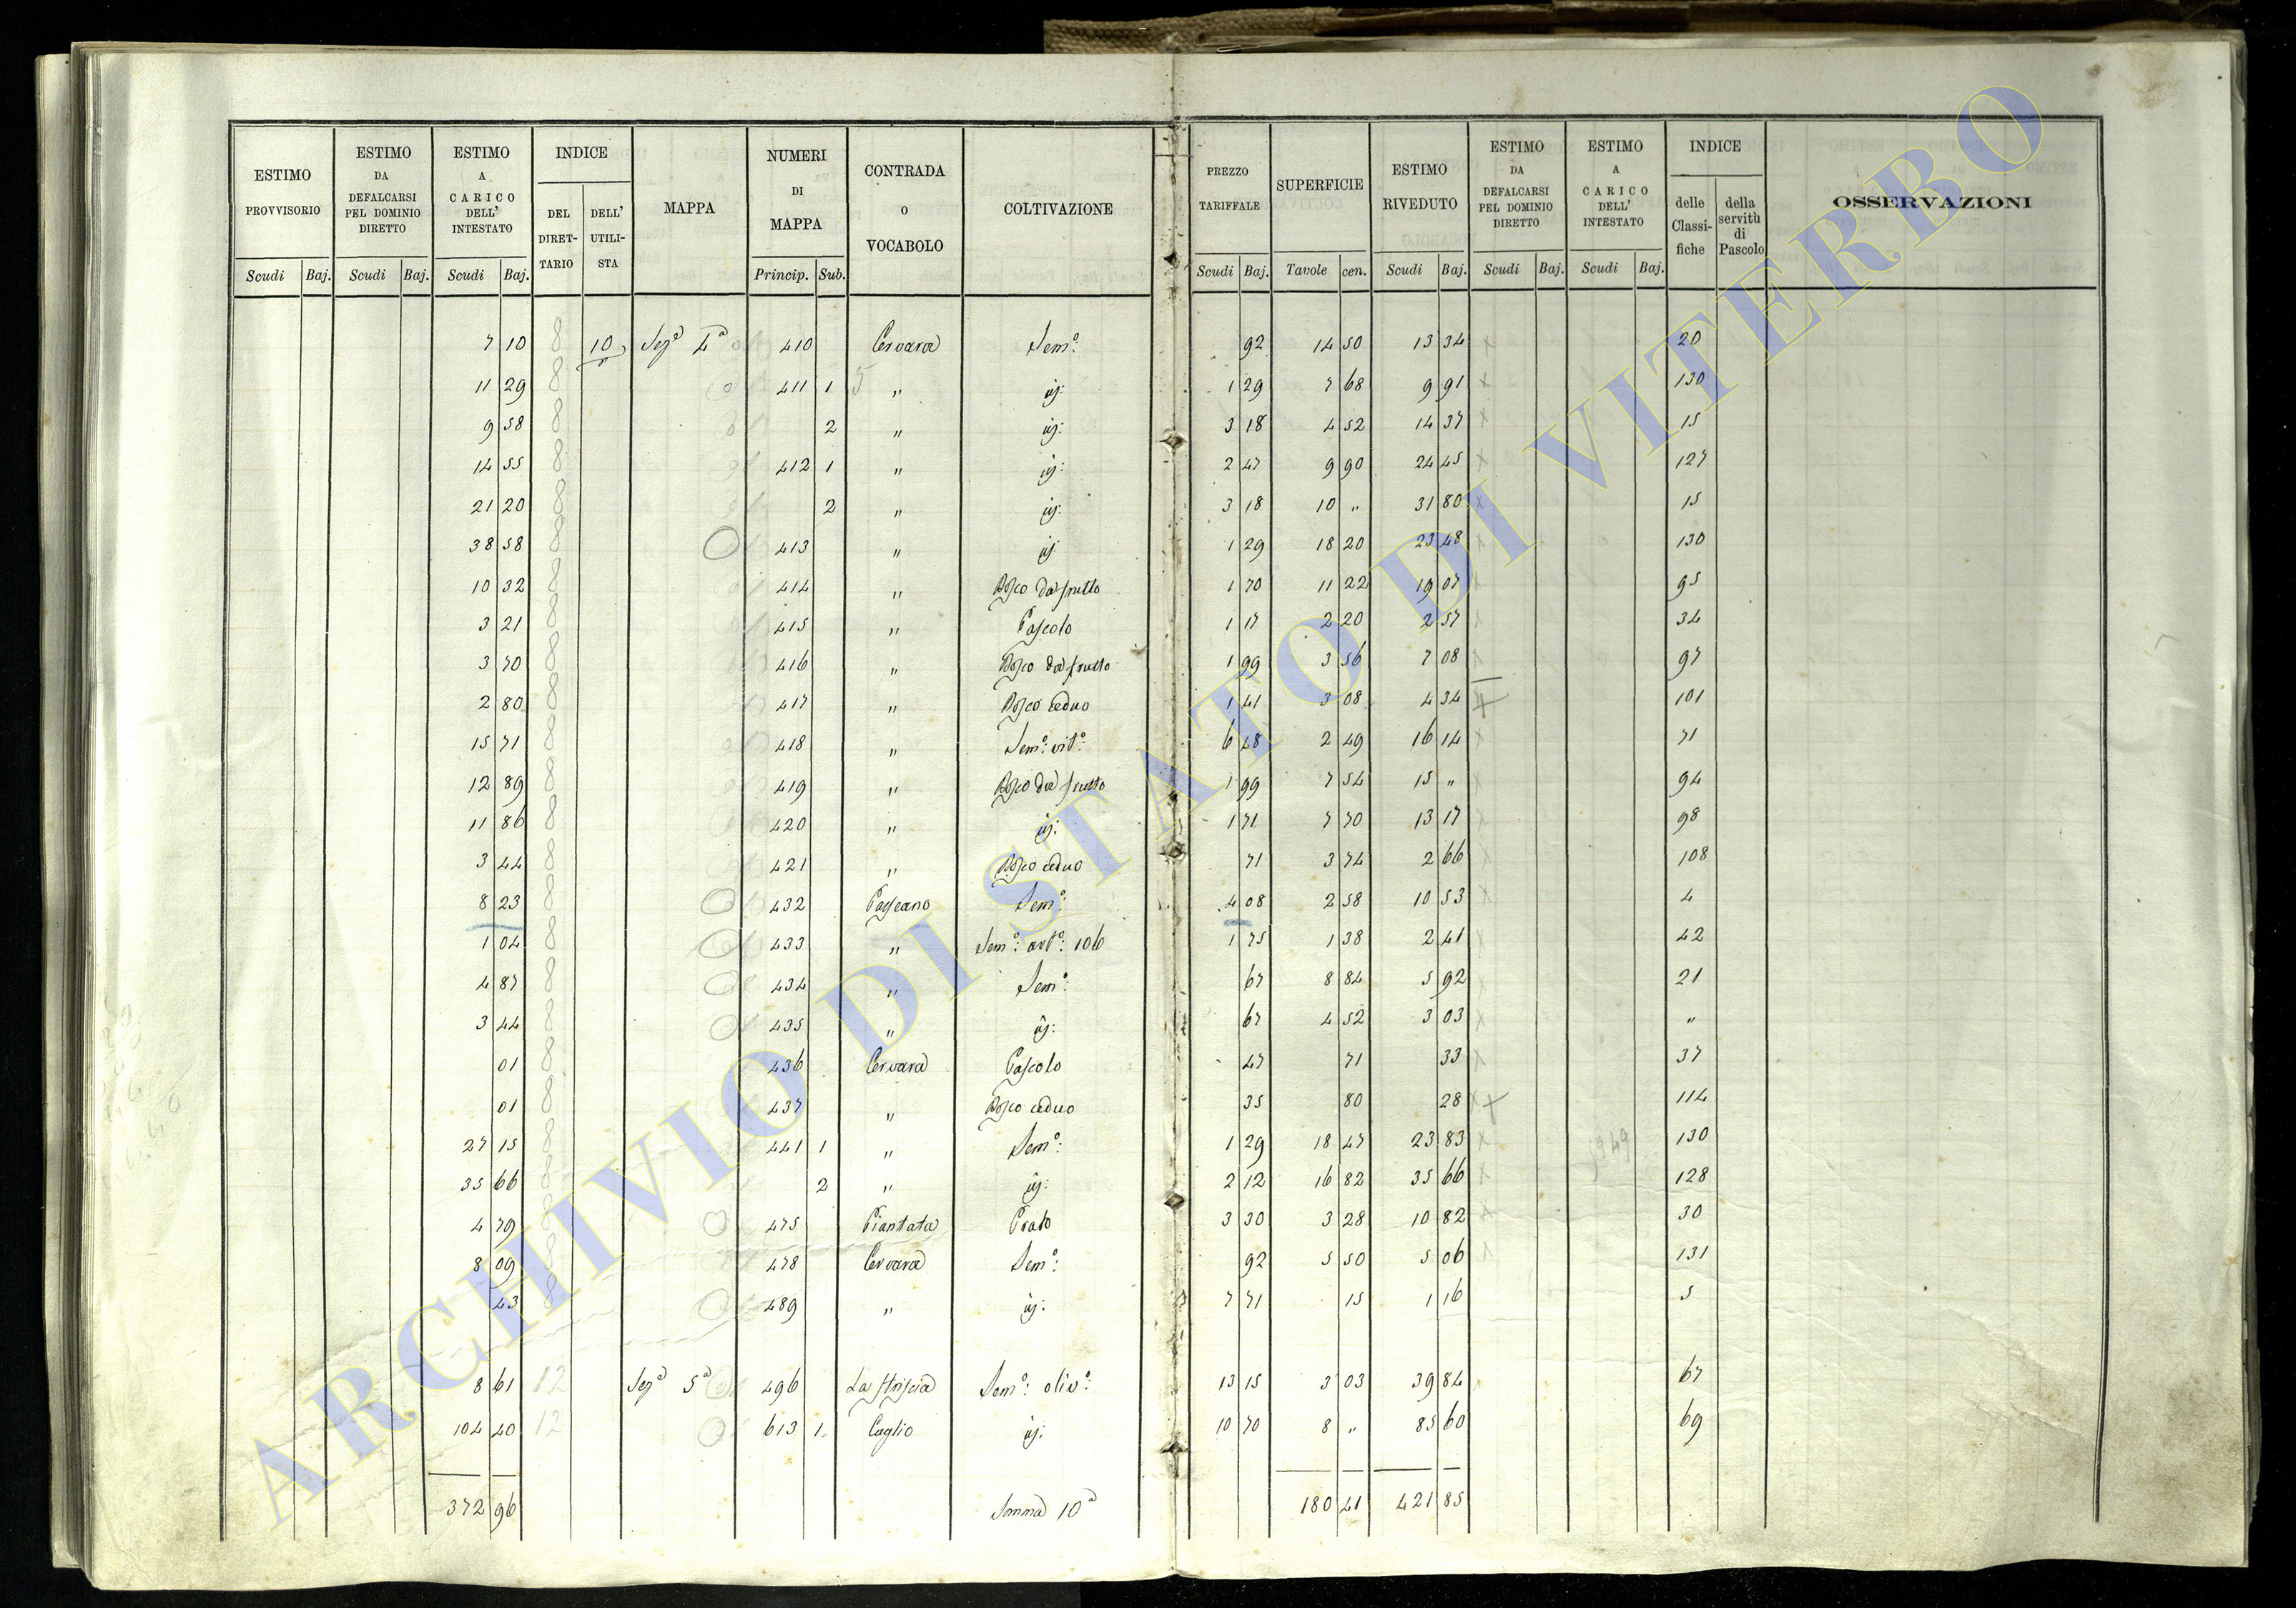 ESTIMO PROVVISORIO | ESTIMO DA DEFALCARSI PEL DOMINIO DIRETTO | ESTIMO A CARICO DELL' INTESTATO | INDICE | MAPPA | NUMERI DI MAPPA | CONTRADA O VOCABOLO | COLTIVAZIONE | PREZZO TARIFFALE | SUPERFICIE | ESTIMO RIVEDUTO | ESTIMO DA DEFALCARSI PEL DOMINIO DIRETTO | ESTIMO A CARICO DELL' INTESTATO | INDICE | OSSERVAZIONI
DEL DIRET-TARIO | DELL' UTILI-STA | delle Classi-fiche | della servitù di Pascolo
Scudi | Baj. | Scudi | Baj. | Scudi | Baj. | Princip. | Sub. | Scudi | Baj. | Tavole | cen. | Scudi | Baj. | Scudi | Baj. | Scudi | Baj.
7 10 8 10 Sezª 4ª 410 Cervara Semº: 92 14 50 13 34 x 20
11 29 8 411 1 5 " iġ: 1 29 7 68 9 91 x 130
9 58 8 2 " iġ: 3 18 4 52 14 37 x 15
14 55 8 412 1 " iġ: 2 47 9 90 24 45 x 127
21 20 8 2 " iġ: 3 18 10 " 31 80 x 15
38 58 8 413 " iġ: 1 29 18 20 23 48 x 130
10 32 8 414 " Bosco da frutto 1 70 11 22 19 07 x 95
3 21 8 415 " Pascolo 1 17 2 20 2 57 x 34
3 70 8 416 " Bosco da frutto 1 99 3 56 7 08 x 97
2 80 8 417 " Bosco ceduo 1 41 3 08 4 34 x 101
15 71 8 418 " Semº: vitº: 6 48 2 49 16 14 x 71
12 89 8 419 " Bosco da frutto 1 99 7 54 15 " x 94
11 86 8 420 " iġ: 1 71 7 70 13 17 x 98
3 44 8 421 " Bosco ceduo 71 3 74 2 66 x 108
8 23 8 432 Passeano Semº: 4 08 2 58 10 53 x 4
1 04 8 433 " Semº: artº: 106 1 75 1 38 2 41 x 42
4 87 8 434 " Semº: 67 8 84 5 92 x 21
3 44 8 435 " iġ: 67 4 52 3 03 x "
01 8 436 Cervara Pascolo 47 71 33 x 37
01 8 437 " Bosco ceduo 35 80 28 x 114
27 15 8 441 1 " Semº: 1 29 18 47 23 83 x 130
35 66 8 2 " iġ: 2 12 16 82 35 66 x 128
4 79 8 475 Piantata Prato 3 30 3 28 10 82 x 30
8 09 8 478 Cervara Semº: 92 5 50 5 06 x 131
43 8 489 " iġ: 7 71 15 1 16 5
8 61 12 Sezª 5ª 496 La Striscia Semº: olivº: 13 15 3 03 39 84 67
104 40 12 613 1 Cuglio iġ: 10 70 8 " 85 60 69
372 96 Somma 10ª 180 41 421 85
ARCHIVIO DI STATO DI VITERBO